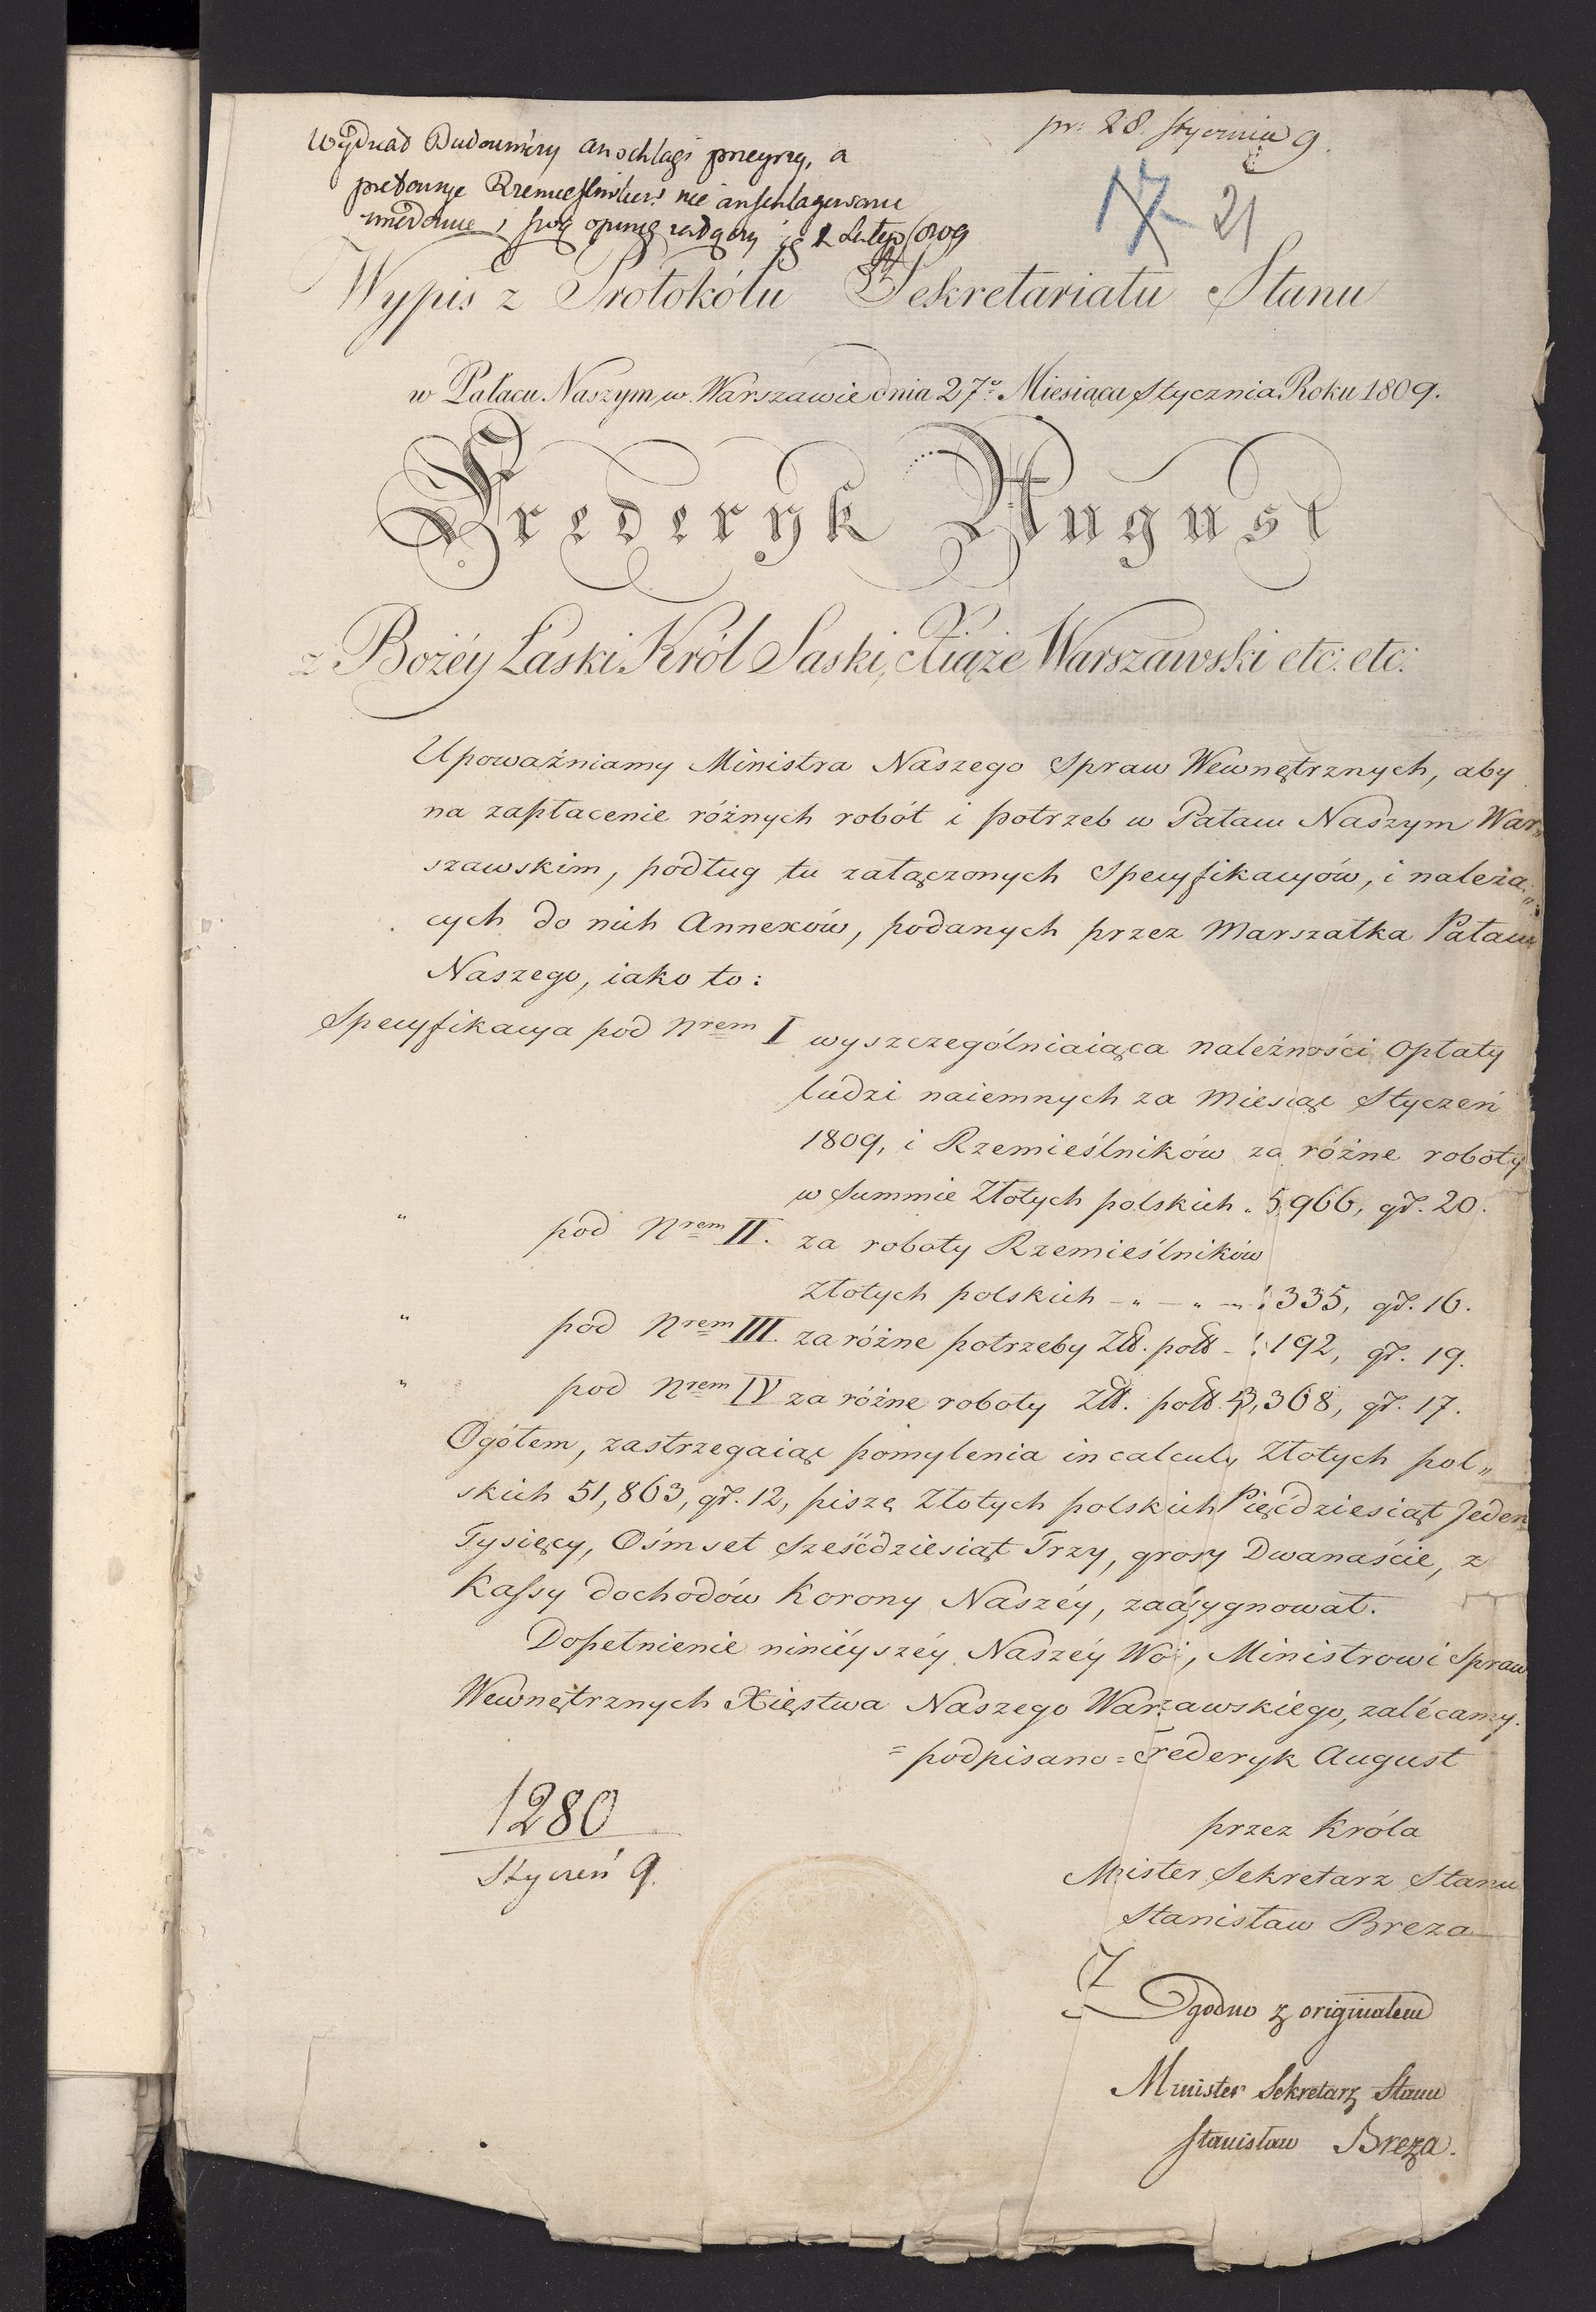 pr: 28. Stycznia 9.
Wydział Budowniczy anschlagi przeyrzy, a
pretensye Rzemieslników nie anschlagowane
i swą opinię
2 Lutego 1809
17 21
Wypis z Protokółu Sekretariatu Stanu
w Pałacu Naszym w Warszawie dnia 27º Miesiąca Stycznia Roku 1809.
Frederyk August
z Bożéy Łaski Król Saski, Xiąże Warszawski etc: etc:
Upoważniamy Ministra Naszego Spraw Wewnętrznych, aby
na zapłacenie różnych robót i potrzeb w Pałacu Naszym War„
szawskim, podług tu załączonych Specyfikacyów, i należą„
cych do nich Annexów, podanych przez Marszałka Pałacu
Naszego, iako to:
Specyfikacya pod Nrem I wyszczególniaiąca należności Opłaty
ludzi naiemnych za Miesiąc Styczeń
1809, i Rzemieślników za różne roboty
w Summie Złotych polskich „ 5966, gr. 20.
„ pod Nrem II. za roboty Rzemieślników
Złotych polskich – „ – „ – 335, gr. 16.
„ pod Nrem III. za różne potrzeby Zł. pol. – 192, gr. 19.
„ pod Nrem IV za różne roboty Zł. pol. 3,368, gr. 17.
Ogółem, zastrzegaiąc pomylenia in calculy Złotych pol„
skich 51,863, gr. 12, piszę Złotych polskich Pięćdziesiąt Jeden
Tysięcy, Ośmset Sześćdziesiąt Trzy, groszy Dwanaście, z
Kassy dochodów Korony Naszéy, zaassygnował.
Dopełnienie niniéyszéy Naszéy Woli, Ministrowi Spraw
Wewnętrznych Xięstwa Naszego Warszawskiego, zalécamy.
= podpisano = Frederyk August
1280
Styczeń 9.
przez Króla
Minister Sekretarz Stanu
Stanisław Breza
Zgodno z originałem
Minister Sekretarz Stanu
Stanisław Breza.